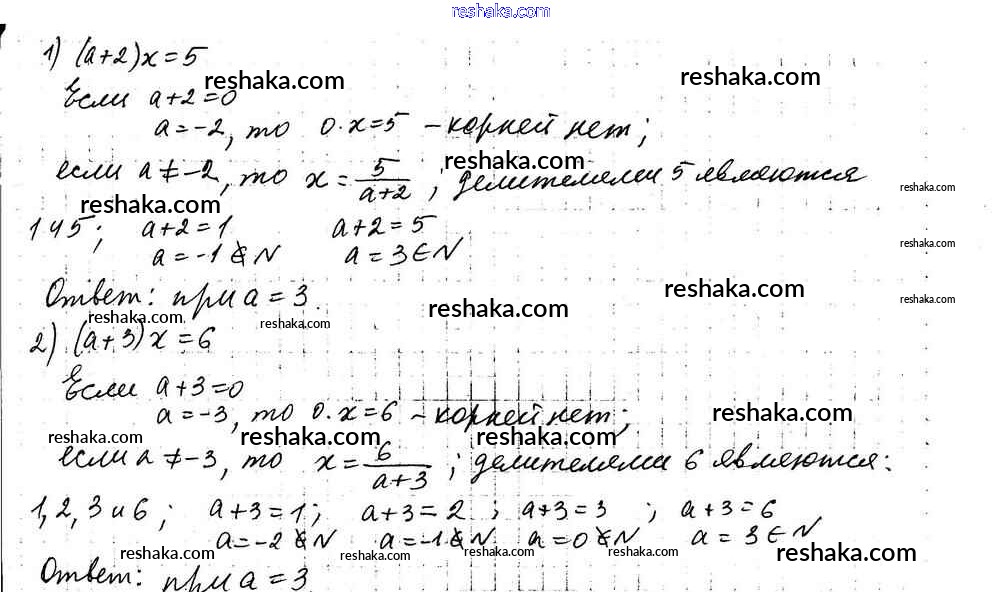 reshaka.com
1) (a+2)x=5
reshaka.com reshaka.com
Если a+2=0
a=-2, то 0·x=5 – корней нет;
reshaka.com
если a≠-2, то x=5/(a+2); делителями 5 являются
reshaka.com
reshaka.com
1 и 5; a+2=1 a+2=5
reshaka.com
a=-1∉N a=3∈N
Ответ: при a=3.
reshaka.com reshaka.com reshaka.com
reshaka.com reshaka.com
2) (a+3)x=6
Если a+3=0
a=-3, то 0·x=6 – корней нет;
reshaka.com
reshaka.com reshaka.com reshaka.com
если a≠-3, то x=6/(a+3); делителями 6 являются:
1, 2, 3 и 6; a+3=1; a+3=2; a+3=3; a+3=6
a=-2∉N a=-1∉N a=0∉N a=3∈N
reshaka.com reshaka.com reshaka.com reshaka.com
Ответ: при a=3